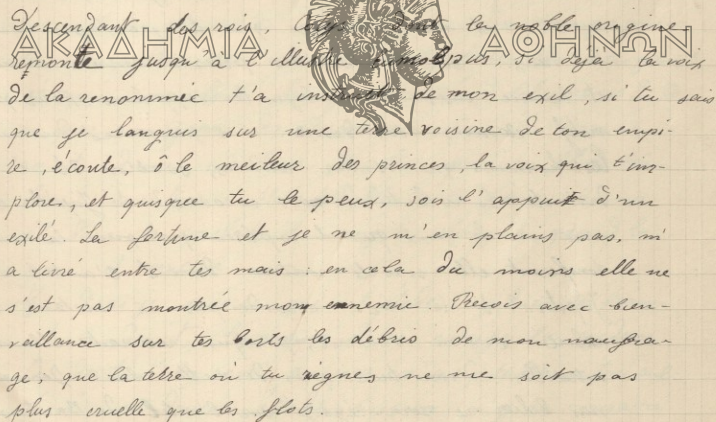 descendant des rois, Cotys dont la noble origine
ΑΚΑΔΗΜΙΑ ΑΘΗΝΩΝ
remonte jusqu'à l'illustre Eumolpus, si déjà la voix
de la renommée t'a instruit de mon exil, si tu sais
que je languis sur une terre voisine de ton empi-
re, écoute, ô le meileur des princes, la voix qui t'im-
plore, et quisque tu le peux, sois l'appuit d'un
exilé. La fortune et je ne m'en plains pas, m'
a livré entre tes mais : en cela du moins elle ne
s'est pas montrée mon ennemie. Recois avec bien-
vaillance sur tes borts les débris de mon naufra-
ge; que la terre où tu règnes ne me soit pas
plus cruelle que les flots.